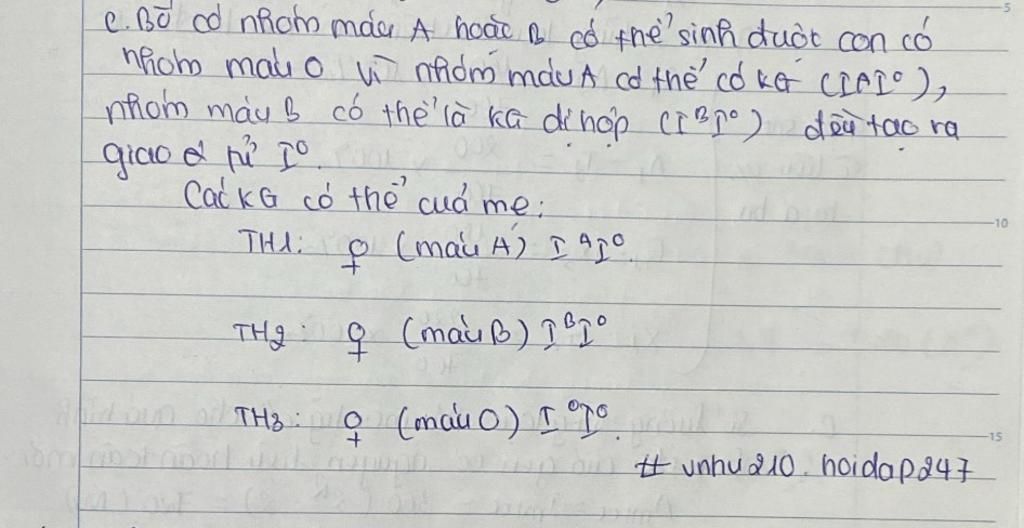 c. Bố có nhóm máu A hoặc B có thể sinh được con có
nhóm máu O vì nhóm máu A có thể có KG (IAI⁰),
nhóm máu B có thể là KG dị hợp (IᴮI⁰) đều tạo ra
giao tử I⁰.
Các KG có thể của mẹ:
TH1: ♀ (máu A) IᴬI⁰.
TH2: ♀ (máu B) IᴮI⁰
TH3: ♀ (máu O) I⁰I⁰.
# vnhu210. hoidap247
5
10
15